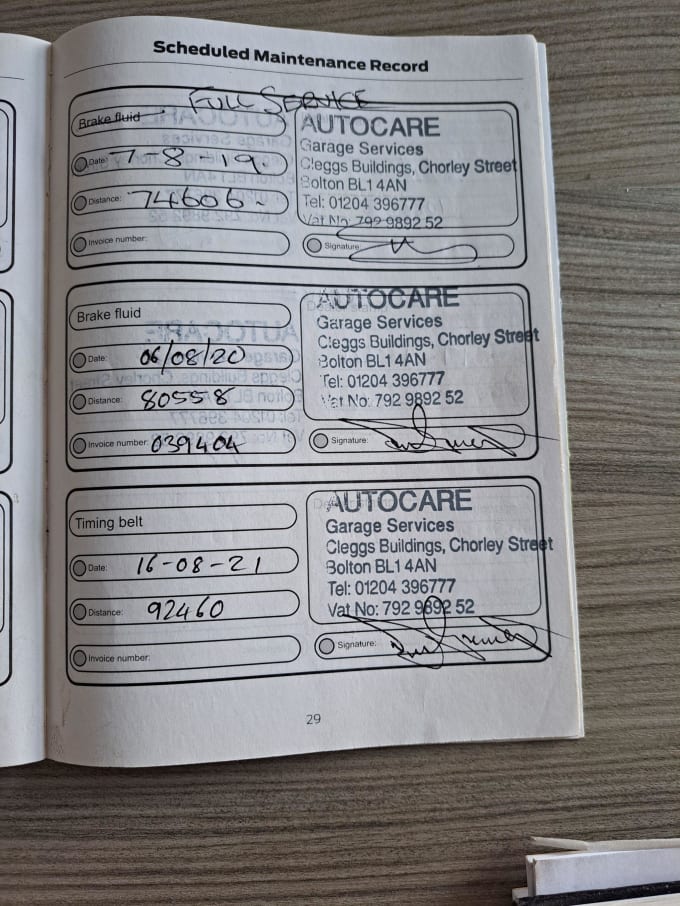 Scheduled Maintenance Record
FULL SERVICE
Brake fluid
Date: 7-8-19
Distance: 74606
Invoice number:
AUTOCARE
Garage Services
Cleggs Buildings, Chorley Street
Bolton BL1 4AN
Tel: 01204 396777
Vat No: 792 9892 52
Signature:
Brake fluid
Date: 06/08/20
Distance: 80558
Invoice number: 039404
AUTOCARE
Garage Services
Cleggs Buildings, Chorley Street
Bolton BL1 4AN
Tel: 01204 396777
Vat No: 792 9892 52
Signature:
Timing belt
Date: 16-08-21
Distance: 92460
Invoice number:
AUTOCARE
Garage Services
Cleggs Buildings, Chorley Street
Bolton BL1 4AN
Tel: 01204 396777
Vat No: 792 9892 52
Signature:
29